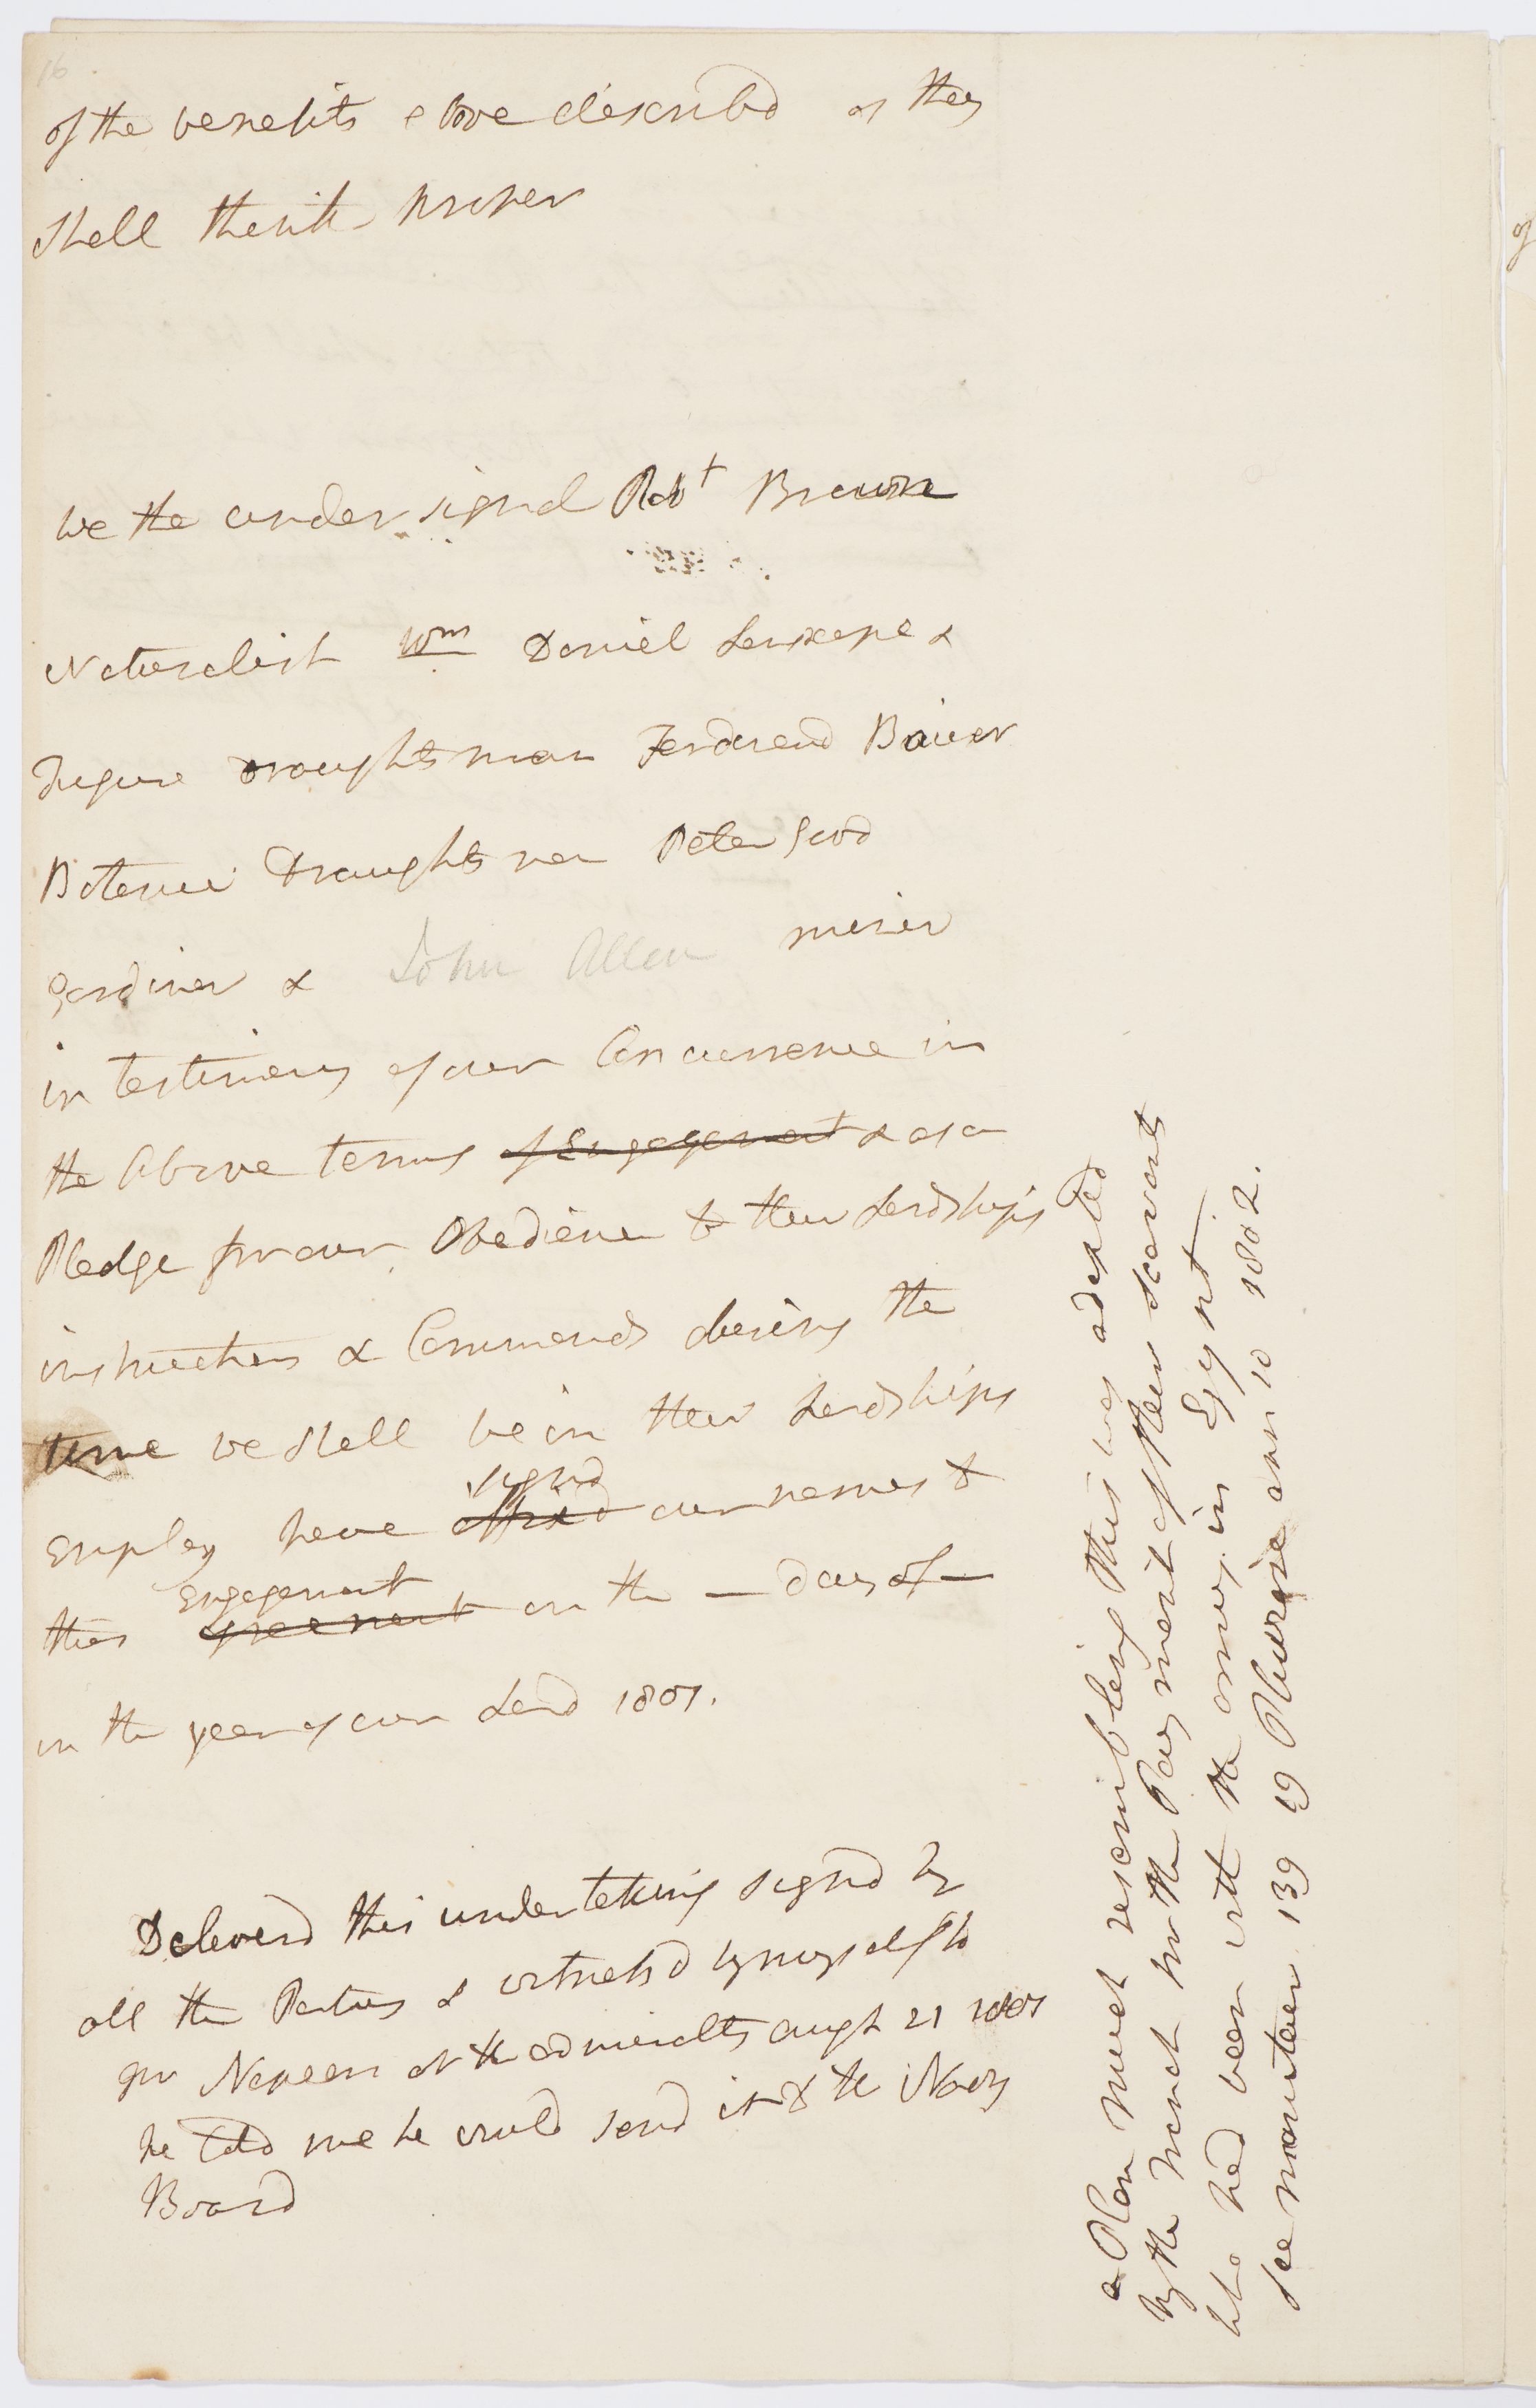 16
of the benefits above describd as they
shall think proper
We the undersignd Robt Brown
Naturalist Wm Daniel Lanscape &
Figure draughtsman Ferdinand Bauer
Botanic Draughtsman Peter Good
Gardiner & John Allen miner
in testimony of our Concurrence in
the Above terms of Engagement & as a
Pledge for our Obedience to their Lordships
instructions & Commands during the
time we shall be in their Lordships
signd
Employ have affixd our names to
Engagement
this agreement on the — day of —
in the year of our Lord 1801.
Deliverd this undertaking signd by
all the Parties & witnessd by myself to
Mr Nepean at the admiralty augt 21 1801
he told me he would send it to the Navy
Board
a Plan much resembling this was adopted
by the french for the Payment of their scavants
who had been with the army in Egypt
see moniteur 139 19 Pluviose ann 10 1802.